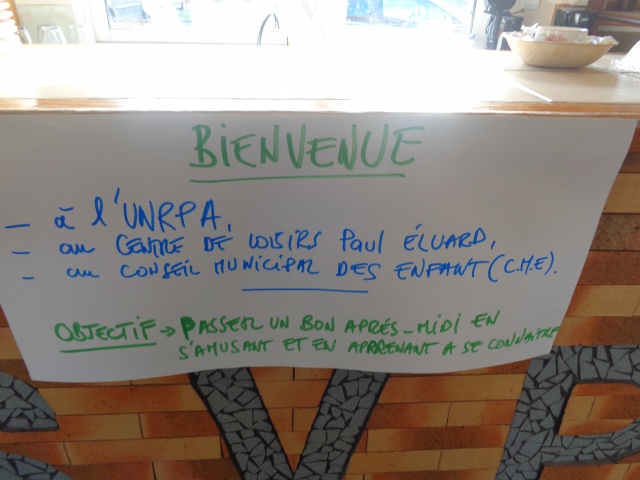 BIENVENUE
- à l'UNRPA,
- au CENTRE DE LOISIRS Paul ÉLUARD,
- au CONSEIL MUNICIPAL DES ENFANT (C.M.E).
OBJECTIF → PASSER UN BON APRÉS-MIDI EN
S'AMUSANT ET EN APPRENANT A SE CONNAITRE